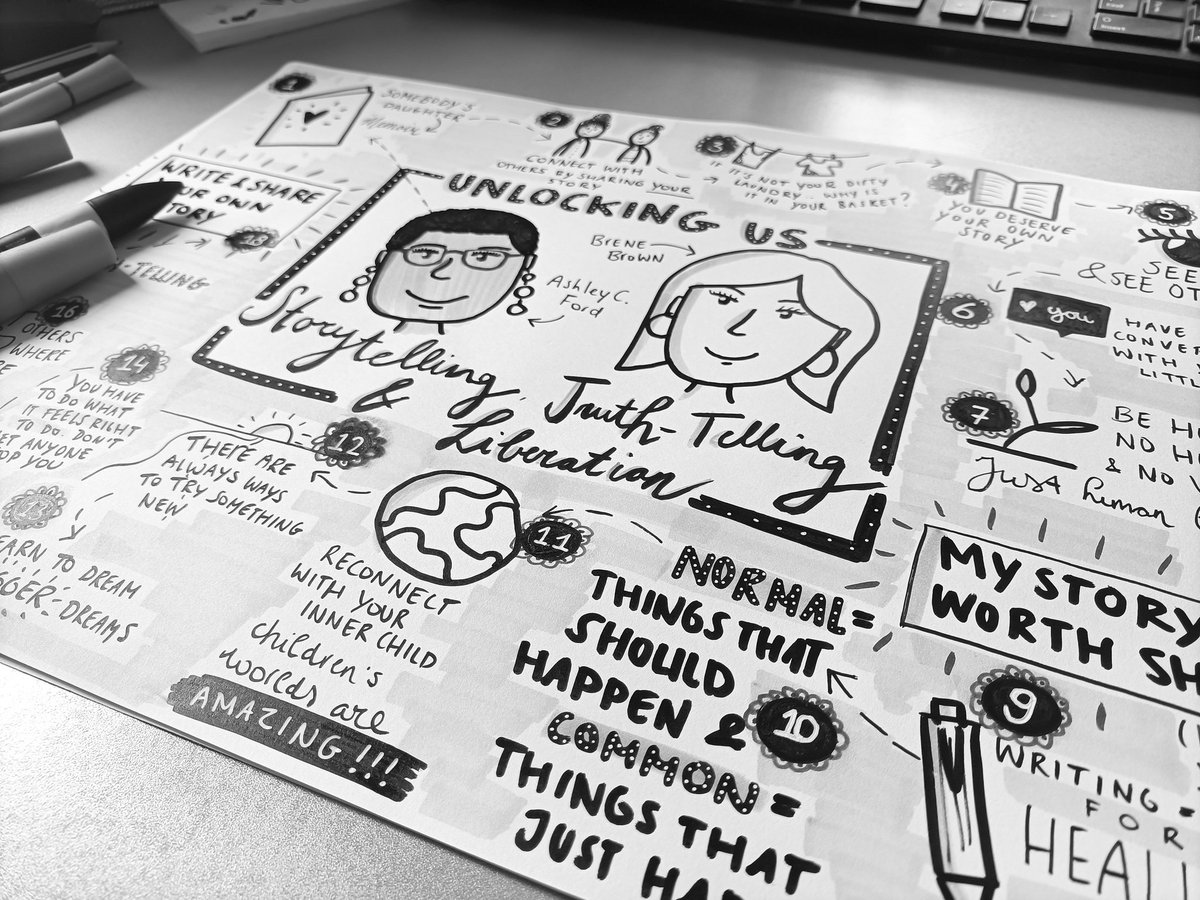 UNLOCKING US
BRENÉ
BROWN
Ashley C.
Ford
Storytelling,
& Truth-Telling
Liberation
1
SOMEBODY'S
DAUGHTER
Memoir
2
CONNECT WITH
OTHERS BY SHARING YOUR
STORY
3
IF IT'S NOT YOUR DIRTY
LAUNDRY.. WHY IS
IT IN YOUR BASKET?
4
YOU DESERVE
YOUR OWN
STORY
5
SEE
& SEE OT
6
you
HAVE
CONVER
WITH
LITTL
7
BE H
NO H
& NO
Just human
MY STORY
WORTH SH
9
WRITING =
FOR
HEALI
10
NORMAL =
THINGS THAT
SHOULD
HAPPEN &
COMMON =
THINGS THAT
JUST HA
11
RECONNECT
WITH YOUR
INNER CHILD
children's
worlds are
AMAZING !!!
12
THERE ARE
ALWAYS WAYS
TO TRY SOMETHING
NEW
13
EARN TO DREAM
GGER DREAMS
14
YOU HAVE
TO DO WHAT
IT FEELS RIGHT
TO DO. DON'T
ET ANYONE
TOP YOU
16
OTHERS
WHERE
RE
-TELLING
18
WRITE & SHARE
OUR OWN
TORY